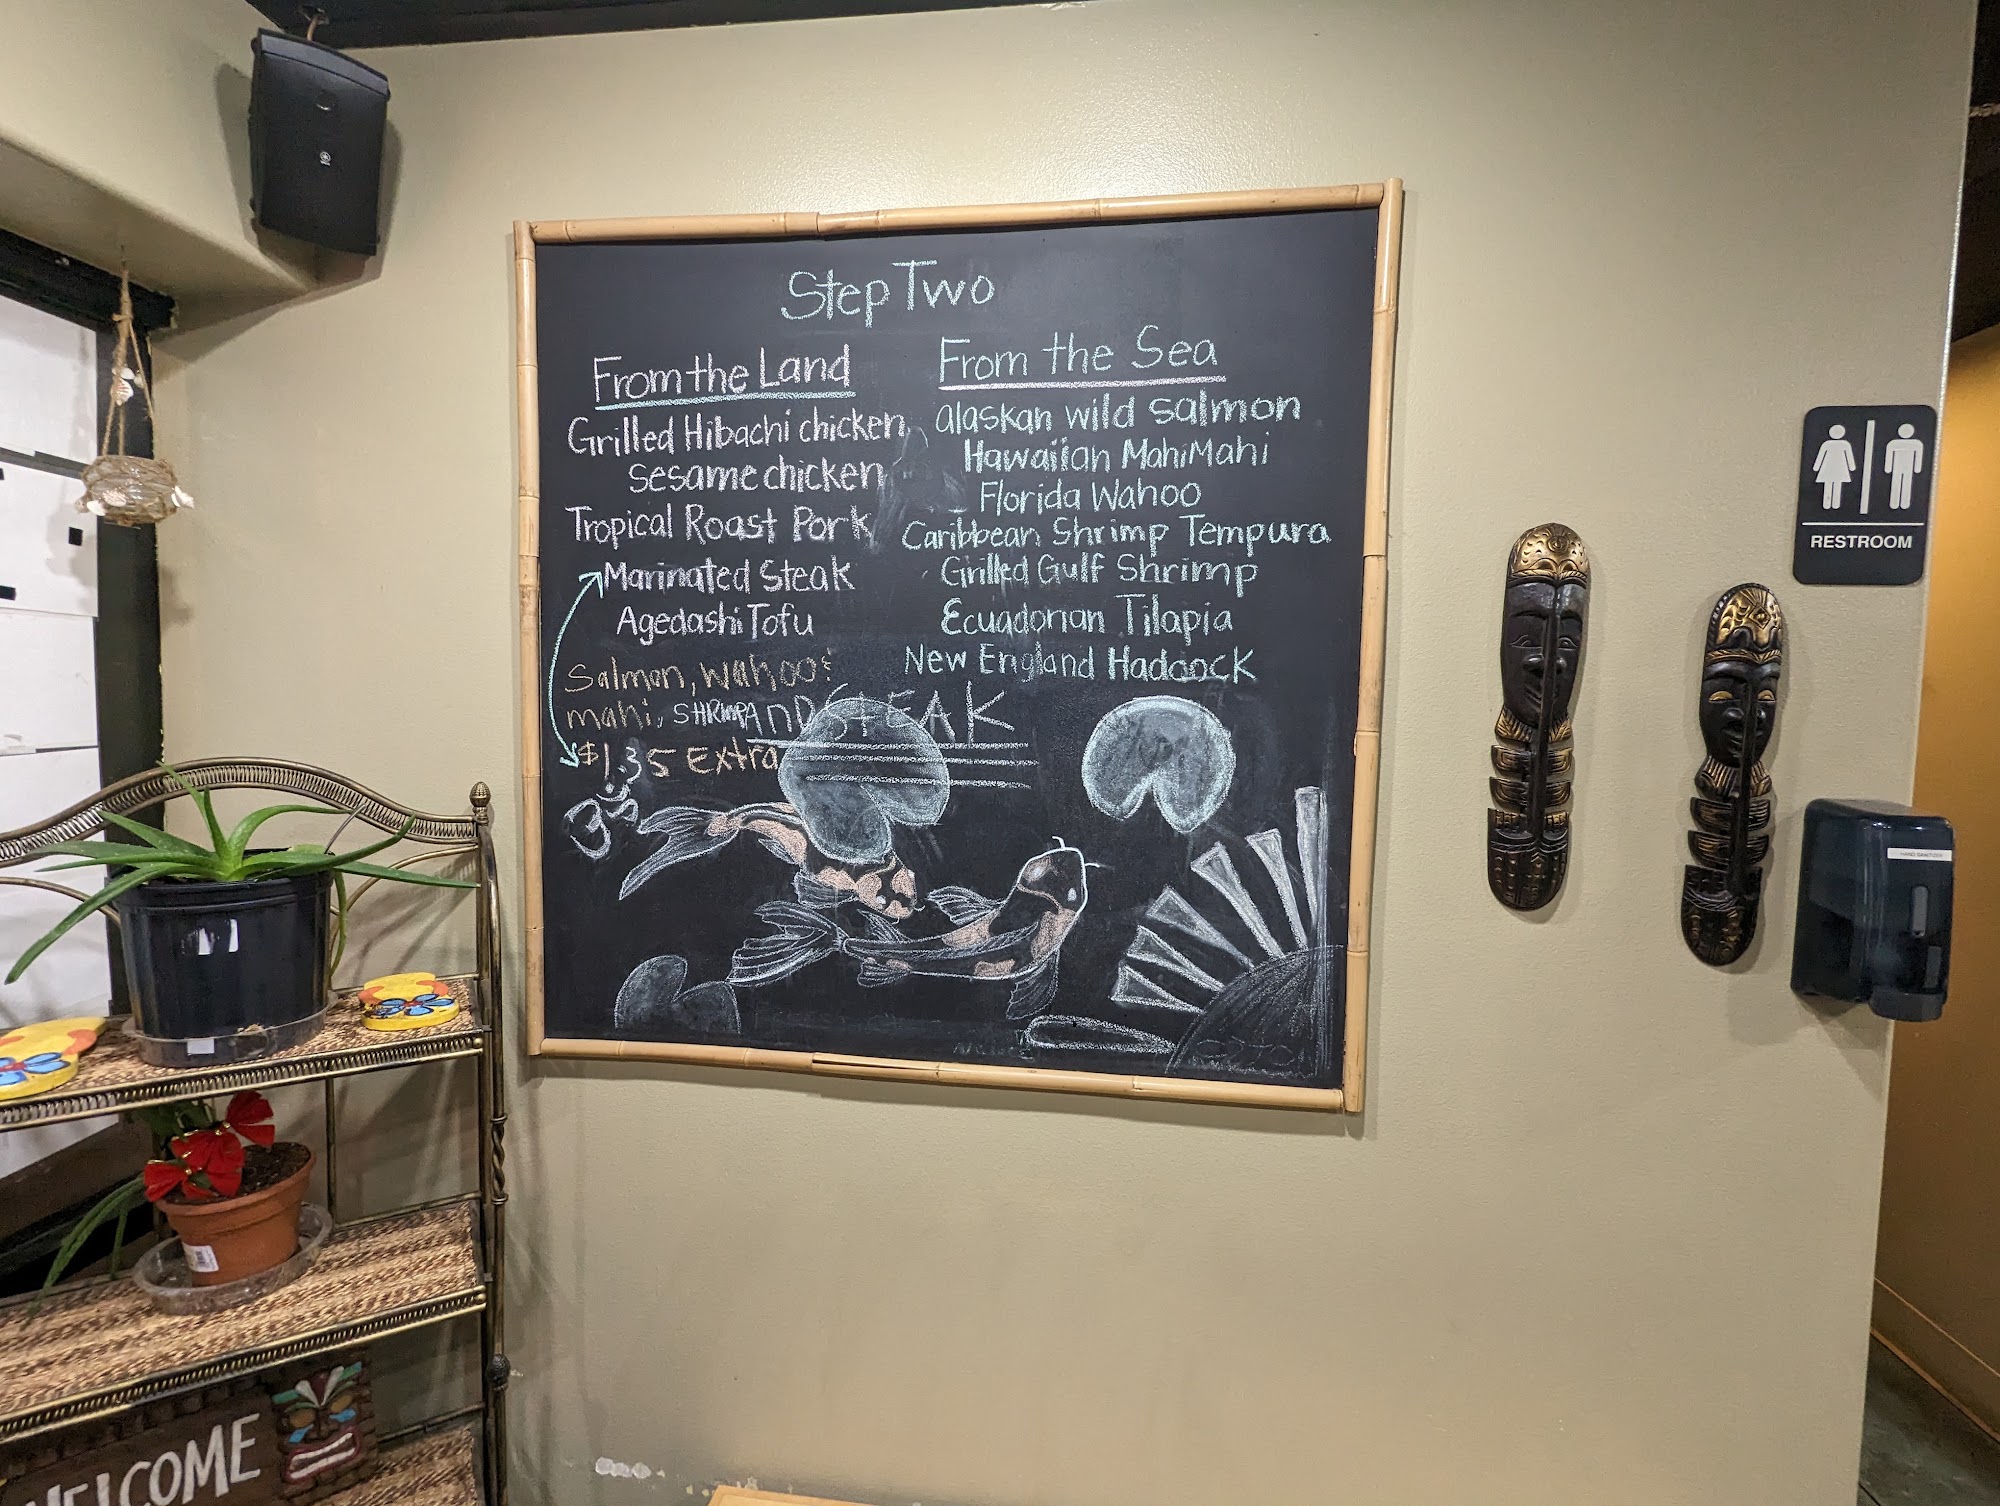 Step Two
From the Land
Grilled Hibachi chicken
sesame chicken
Tropical Roast Pork
Marinated Steak
Agedashi Tofu
Salmon, wahoo &
mahi, SHRIMP AND STEAK
$1.35 Extra
From the Sea
alaskan wild salmon
Hawaiian MahiMahi
Florida Wahoo
Caribbean Shrimp Tempura
Grilled Gulf Shrimp
Ecuadorian Tilapia
New England Haddock
RESTROOM
HAND SANITIZER
WELCOME